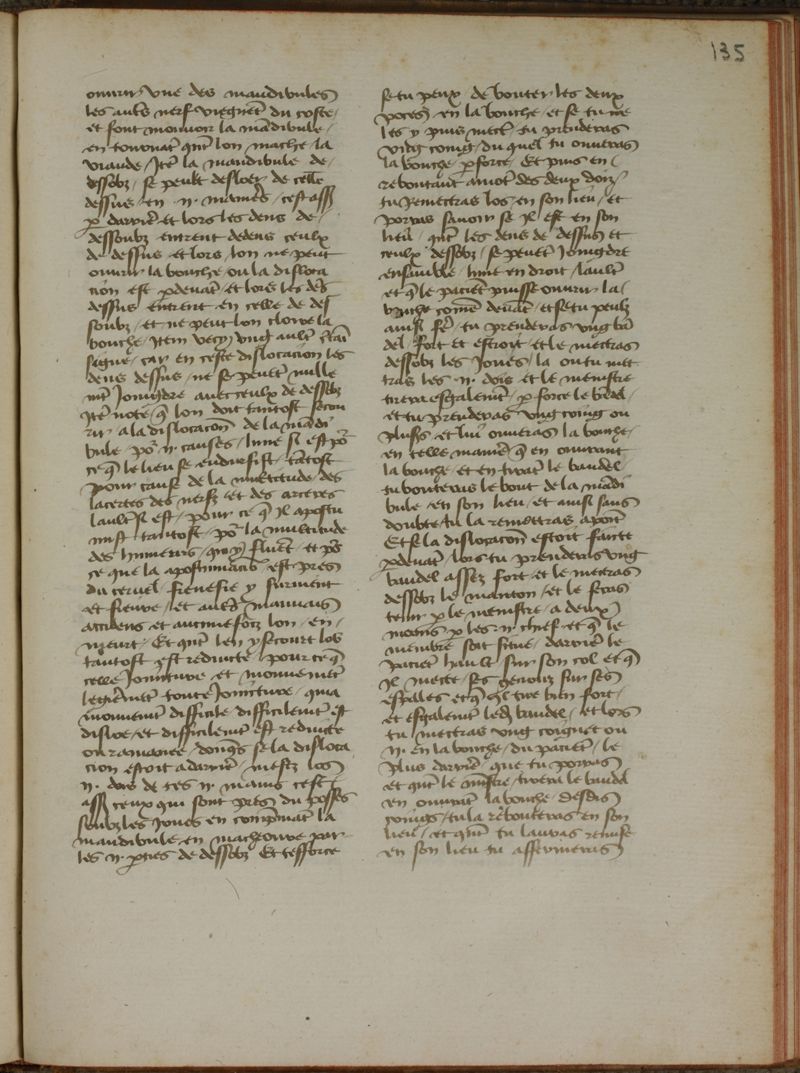 135
ouurir une des mandibules
les aultr nerf viegnēt du coste
et font mouuoir la mādibule
en tournāt quāt lon mache la
viande Itē la mandibule de
dessobz se peult desloer de celle
dessus en .ii. manies cest assz
p̄ darriē et lors les dens de
dessoubz entrent dedens ceulx
de dessus et lors lon ne peut
ouurir la bouche ou la disloca
cion est p̄deuāt et lors les dēs
dessus entrent en celle de des
soubz et ne peut lon clorre la
bouche Itē vecy ung aultr
signe car en ceste dislocacion les
dens dessus ne se peuēt nulle
mēt Joindre auec ceulx de dessobz
Itē note q̄ lon doit tantost secou
rir a la dislocacōn de la mādi
bule po² .ii. causes lune si est po²
ce q̄ le lieu se endursist tātost
pour cause de la multitude des
lacertes des nerfz et des arteres
laultr si est pour ce q̄ il apostu
mist tantost po² la multitude
des humeurs qui y fluēt et po²
ce que la apostumaciō est pres
du ceruel fieuesie y suruient
et fieure et aultr̄ mauuais
accidens et aucunefois lon en
meurt Et quāt len y secourt los
tātost est reducte pour ce q̄
celle Joincture et mouuemēt
legieremēt toute Joincture qua
mouuent difficile difficilemēt est
disloe et difficilemēt est reducte
ou ramenee doncqs se la disloca
cion estoit adarriē mestz les
.ii. dois de tes .ii. mains cest
assz ceux qui sont pres du posses
soubz les Joues en comp̄mant la
mandibule en macheoure par
les .ii. pties de dessobz Et tefforce
se tu peux de bouter les deux
poces en la bouche et se tu ne
les y puis mect tu prenderas
ung coing du quel tu ouuras
la bouche p̄ force Et puis en
reboutant auec des deux dois
tu remectras los en son lieu et
porras sauoir se il est en son
lieu quāt les dens de dessus et
ceulx dessobz se peuēt Joingdre
ensamble lune en droit laultr
et q̄ le paciēt puisse ouurir la
bouche come deuāt et se tu peulz
ainsi fē tu prenderas ung bā
del fort et estroit et le mectras
dessobz les Joues la ou tu mec
tras les .ii. dois et le menistre
tirera esgalemēt p̄ force le bādel
et tu prenderas ung coing ou
plusrs et lui ouuras la bouche
en telle manie q̄ en ouurant
la bouche et en tirāt le baudel
tu bouteras le bout de la mādi
bule en son lieu et ainsi sans
doubte tu la remettras apoīt
Et se la dislocacōn estoit faicte
p̄deuāt lors tu prenderas ung
baudel assez fort et le mectras
dessobz le manton et le feras
tenir p̄ le menistre a deux
mains p̄ les .ii. chief et q̄ le
menbre soit situe darriē le
paciēt hault sur son col et q̄
il mecte ses genoux sur ses
espalles et q̄l tire bien fort
et esgalemēt ledz baudel et lors
tu mectras ung coignet ou
.ii. en la bouche du paciēt le
plus darriē que tu porras
et quāt le mīstre tirera le baudel
en ouurāt la bouche desdis
coings tu la rebouteras en son
lieu et quāt tu lauras remise
en son lieu tu affermeras